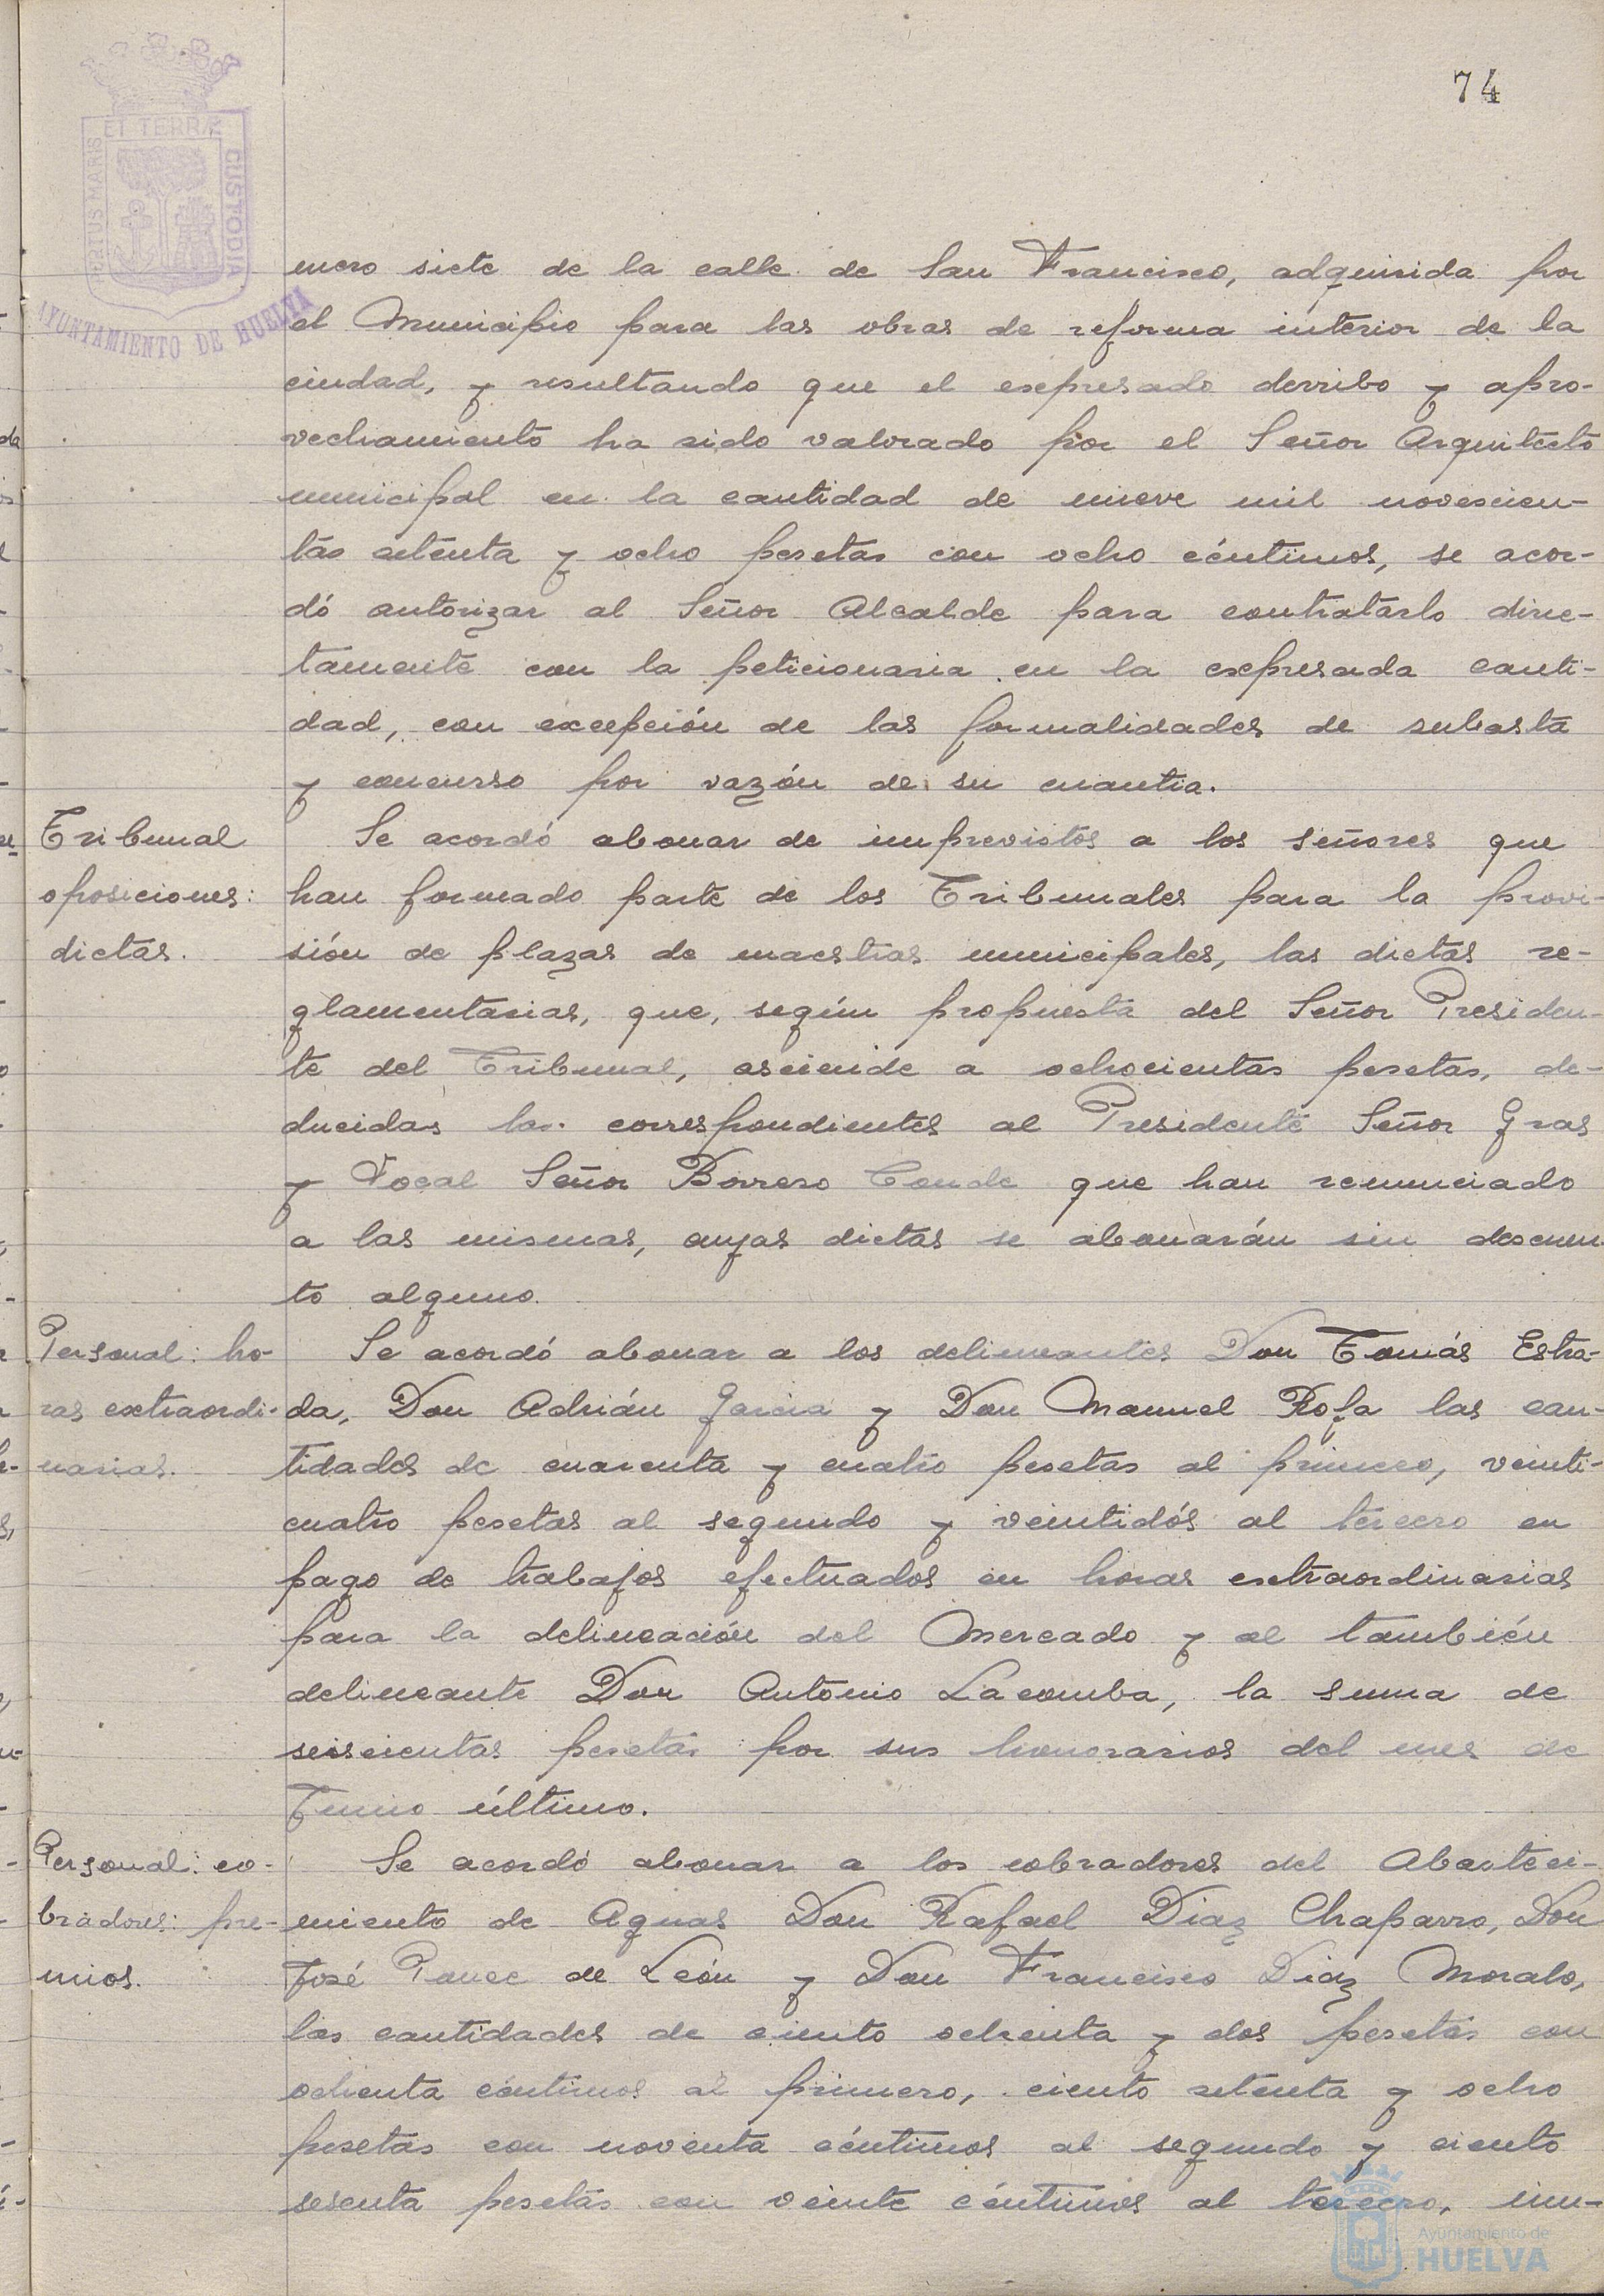 74
PORTUS MARIS
ET TERRÆ
CUSTODIA
AYUNTAMIENTO DE HUELVA
mero siete de la calle de San Francisco, adquirida por
el Municipio para las obras de reforma interior de la
ciudad, y resultando que el expresado derribo y apro-
vechamiento ha sido valorado por el Señor Arquitecto
municipal en la cantidad de nueve mil novescien-
tas setenta y ocho pesetas con ocho céntimos, se acor-
dó autorizar al Señor Alcalde para contratarlo direc-
tamente con la peticionaria en la expresada canti-
dad, con excepción de las formalidades de subasta
y concurso por razón de su cuantia.
Tribunal
oposiciones:
dietas.
Se acordó abonar de imprevistos a los señores que
han formado parte de los Tribunales para la provi-
sión de plazas de maestras municipales, las dietas re-
glamentarias, que, según propuesta del Señor Presiden-
te del Tribunal, asciende a ochocientas pesetas, de-
ducidas las correspondientes al Presidente Señor Gras
y Vocal Señor Borrero Conde que han renunciado
a las mismas, cuyas dietas se abonarán sin descuen-
to alguno.
Personal: ho-
ras extraordi-
narias.
Se acordó abonar a los delineantes Don Tomás Estra-
da, Don Adrián Garcia y Don Manuel Rofa las can-
tidades de cuarenta y cuatro pesetas al primero, veinti-
cuatro pesetas al segundo y veintidós al tercero en
pago de trabajos efectuados en horas extraordinarias
para la delineación del Mercado y al también
delineante Don Antonio Lacomba, la suma de
seiscientas pesetas por sus honorarios del mes de
Junio último.
Personal: co-
bradores: pre-
mios.
Se acordó abonar a los cobradores del Abasteci-
miento de Aguas Don Rafael Diaz Chaparro, Don
José Ponce de León y Don Francisco Diaz Moralo,
las cantidades de ciento ochenta y dos pesetas con
ochenta céntimos al primero, ciento setenta y ocho
pesetas con noventa céntimos al segundo y ciento
sesenta pesetas con veinte céntimos al tercero, im-
Ayuntamiento de
HUELVA